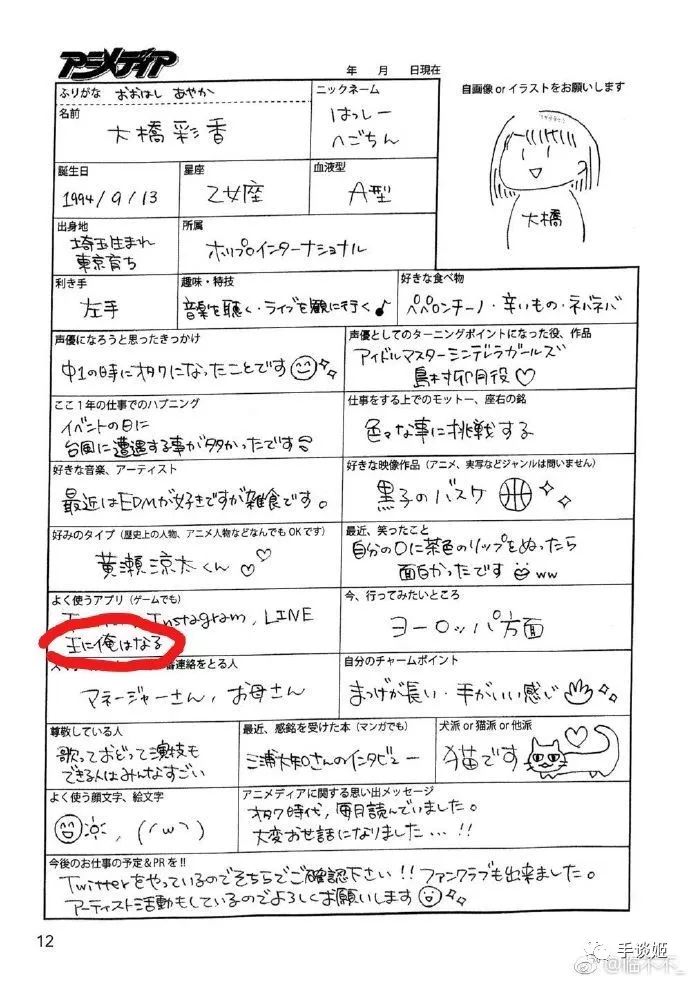 アニメディア
年 月 日現在
ふりがな おおはし あやか
名前
大橋彩香
ニックネーム
はっしー
へごちん
自画像orイラストをお願いします
大橋
誕生日
1994/9/13
星座
乙女座
血液型
A型
出身地
埼玉生まれ
東京育ち
所属
ホリプロインターナショナル
利き手
左手
趣味・特技
音楽を聴く・ライブを観に行く♪
好きな食べ物
ペペロンチーノ・辛いもの・ネバネバ
声優になろうと思ったきっかけ
中1の時にオタクになったことです
声優としてのターニングポイントになった役、作品
アイドルマスターシンデレラガールズ
島村卯月役♡
ここ1年の仕事でのハプニング
イベントの日に
台風に遭遇する事が多かったです
仕事をする上でのモットー、座右の銘
色々な事に挑戦する
好きな音楽、アーティスト
最近はEDMが好きですが雑食です。
好きな映像作品(アニメ、実写などジャンルは問いません)
黒子のバスケ
好みのタイプ(歴史上の人物、アニメ人物などなんでもOKです)
黄瀬涼太くん♡♡
最近、笑ったこと
自分の口に茶色のリップをぬったら
面白かったです ww
よく使うアプリ(ゲームでも)
Instagram, LINE
王に俺はなる
今、行ってみたいところ
ヨーロッパ方面
番連絡をとる人
マネージャーさん, お母さん
自分のチャームポイント
まつげが長い・手がいい感じ
尊敬している人
歌っておどって演技も
できる人はみんなすごい
最近、感銘を受けた本(マンガでも)
三浦大知さんのインタビュー
犬派or猫派or他派
猫です
よく使う顔文字、絵文字
, (´ω`)
アニメディアに関する思い出メッセージ
オタク時代, 毎月読んでいました。
大変お世話になりました...!!
今後のお仕事の予定&PRを!!
Twitterをやっているのでそちらでご確認下さい!! ファンクラブも出来ました。
アーティスト活動もしているのでよろしくお願いします
12
手谈姬
@临不不_